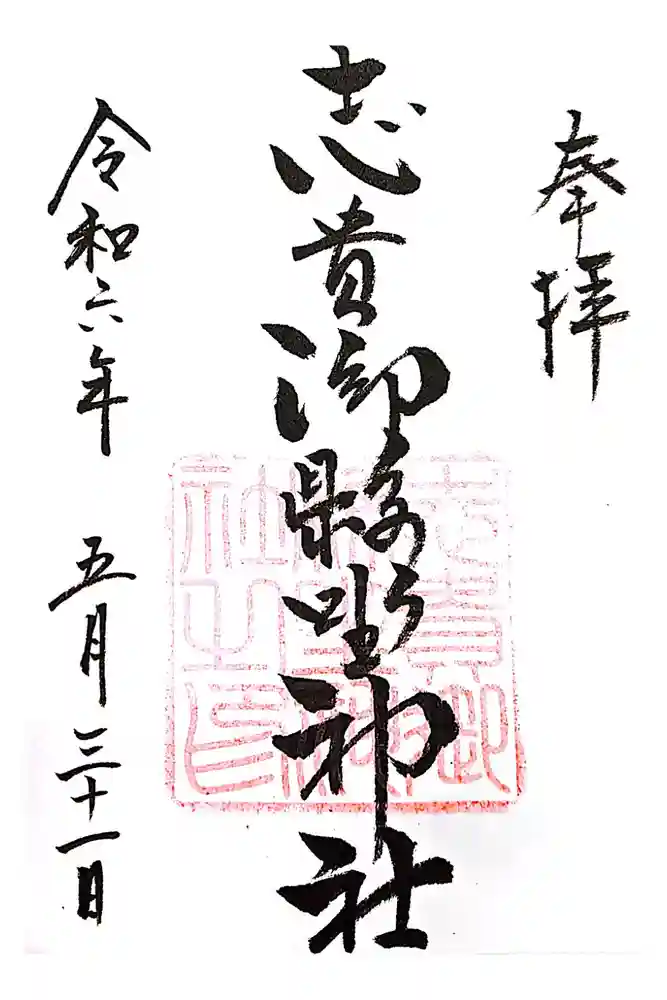 奉拝
志貴御縣坐神社
志貴御縣坐神社之印
令和六年 五月三十一日